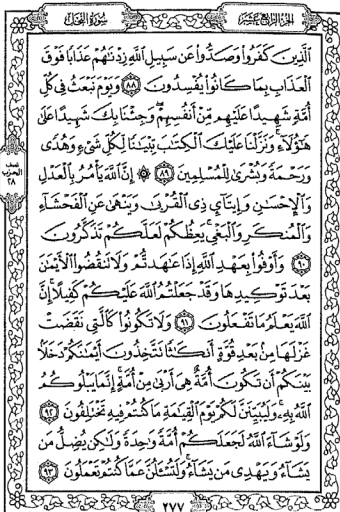 الجزء الرابع عشر
سورة النحل
الَّذِينَ كَفَرُوا وَصَدُّوا عَن سَبِيلِ اللَّهِ زِدْنَاهُمْ عَذَابًا فَوْقَ
الْعَذَابِ بِمَا كَانُوا يُفْسِدُونَ ٨٨ وَيَوْمَ نَبْعَثُ فِي كُلِّ
أُمَّةٍ شَهِيدًا عَلَيْهِم مِّنْ أَنفُسِهِمْ وَجِئْنَا بِكَ شَهِيدًا عَلَى
هَٰؤُلَاءِ وَنَزَّلْنَا عَلَيْكَ الْكِتَٰبَ تِبْيَٰنًا لِّكُلِّ شَيْءٍ وَهُدًى
وَرَحْمَةً وَبُشْرَىٰ لِلْمُسْلِمِينَ ٨٩ ۞ إِنَّ اللَّهَ يَأْمُرُ بِالْعَدْلِ
وَالْإِحْسَٰنِ وَإِيتَآئِ ذِي الْقُرْبَىٰ وَيَنْهَىٰ عَنِ الْفَحْشَآءِ
وَالْمُنكَرِ وَالْبَغْيِ يَعِظُكُمْ لَعَلَّكُمْ تَذَكَّرُونَ
٩٠ وَأَوْفُوا بِعَهْدِ اللَّهِ إِذَا عَٰهَدتُّمْ وَلَا تَنقُضُوا الْأَيْمَٰنَ
بَعْدَ تَوْكِيدِهَا وَقَدْ جَعَلْتُمُ اللَّهَ عَلَيْكُمْ كَفِيلًا إِنَّ
اللَّهَ يَعْلَمُ مَا تَفْعَلُونَ ٩١ وَلَا تَكُونُوا كَالَّتِي نَقَضَتْ
غَزْلَهَا مِن بَعْدِ قُوَّةٍ أَنكَٰثًا تَتَّخِذُونَ أَيْمَٰنَكُمْ دَخَلًا
بَيْنَكُمْ أَن تَكُونَ أُمَّةٌ هِيَ أَرْبَىٰ مِنْ أُمَّةٍ إِنَّمَا يَبْلُوكُمُ
اللَّهُ بِهِ وَلَيُبَيِّنَنَّ لَكُمْ يَوْمَ الْقِيَٰمَةِ مَا كُنتُمْ فِيهِ تَخْتَلِفُونَ ٩٢
وَلَوْ شَآءَ اللَّهُ لَجَعَلَكُمْ أُمَّةً وَٰحِدَةً وَلَٰكِن يُضِلُّ مَن
يَشَآءُ وَيَهْدِي مَن يَشَآءُ وَلَتُسْـَٔلُنَّ عَمَّا كُنتُمْ تَعْمَلُونَ ٩٣
نصف
الحزب
٢٨
٢٧٧